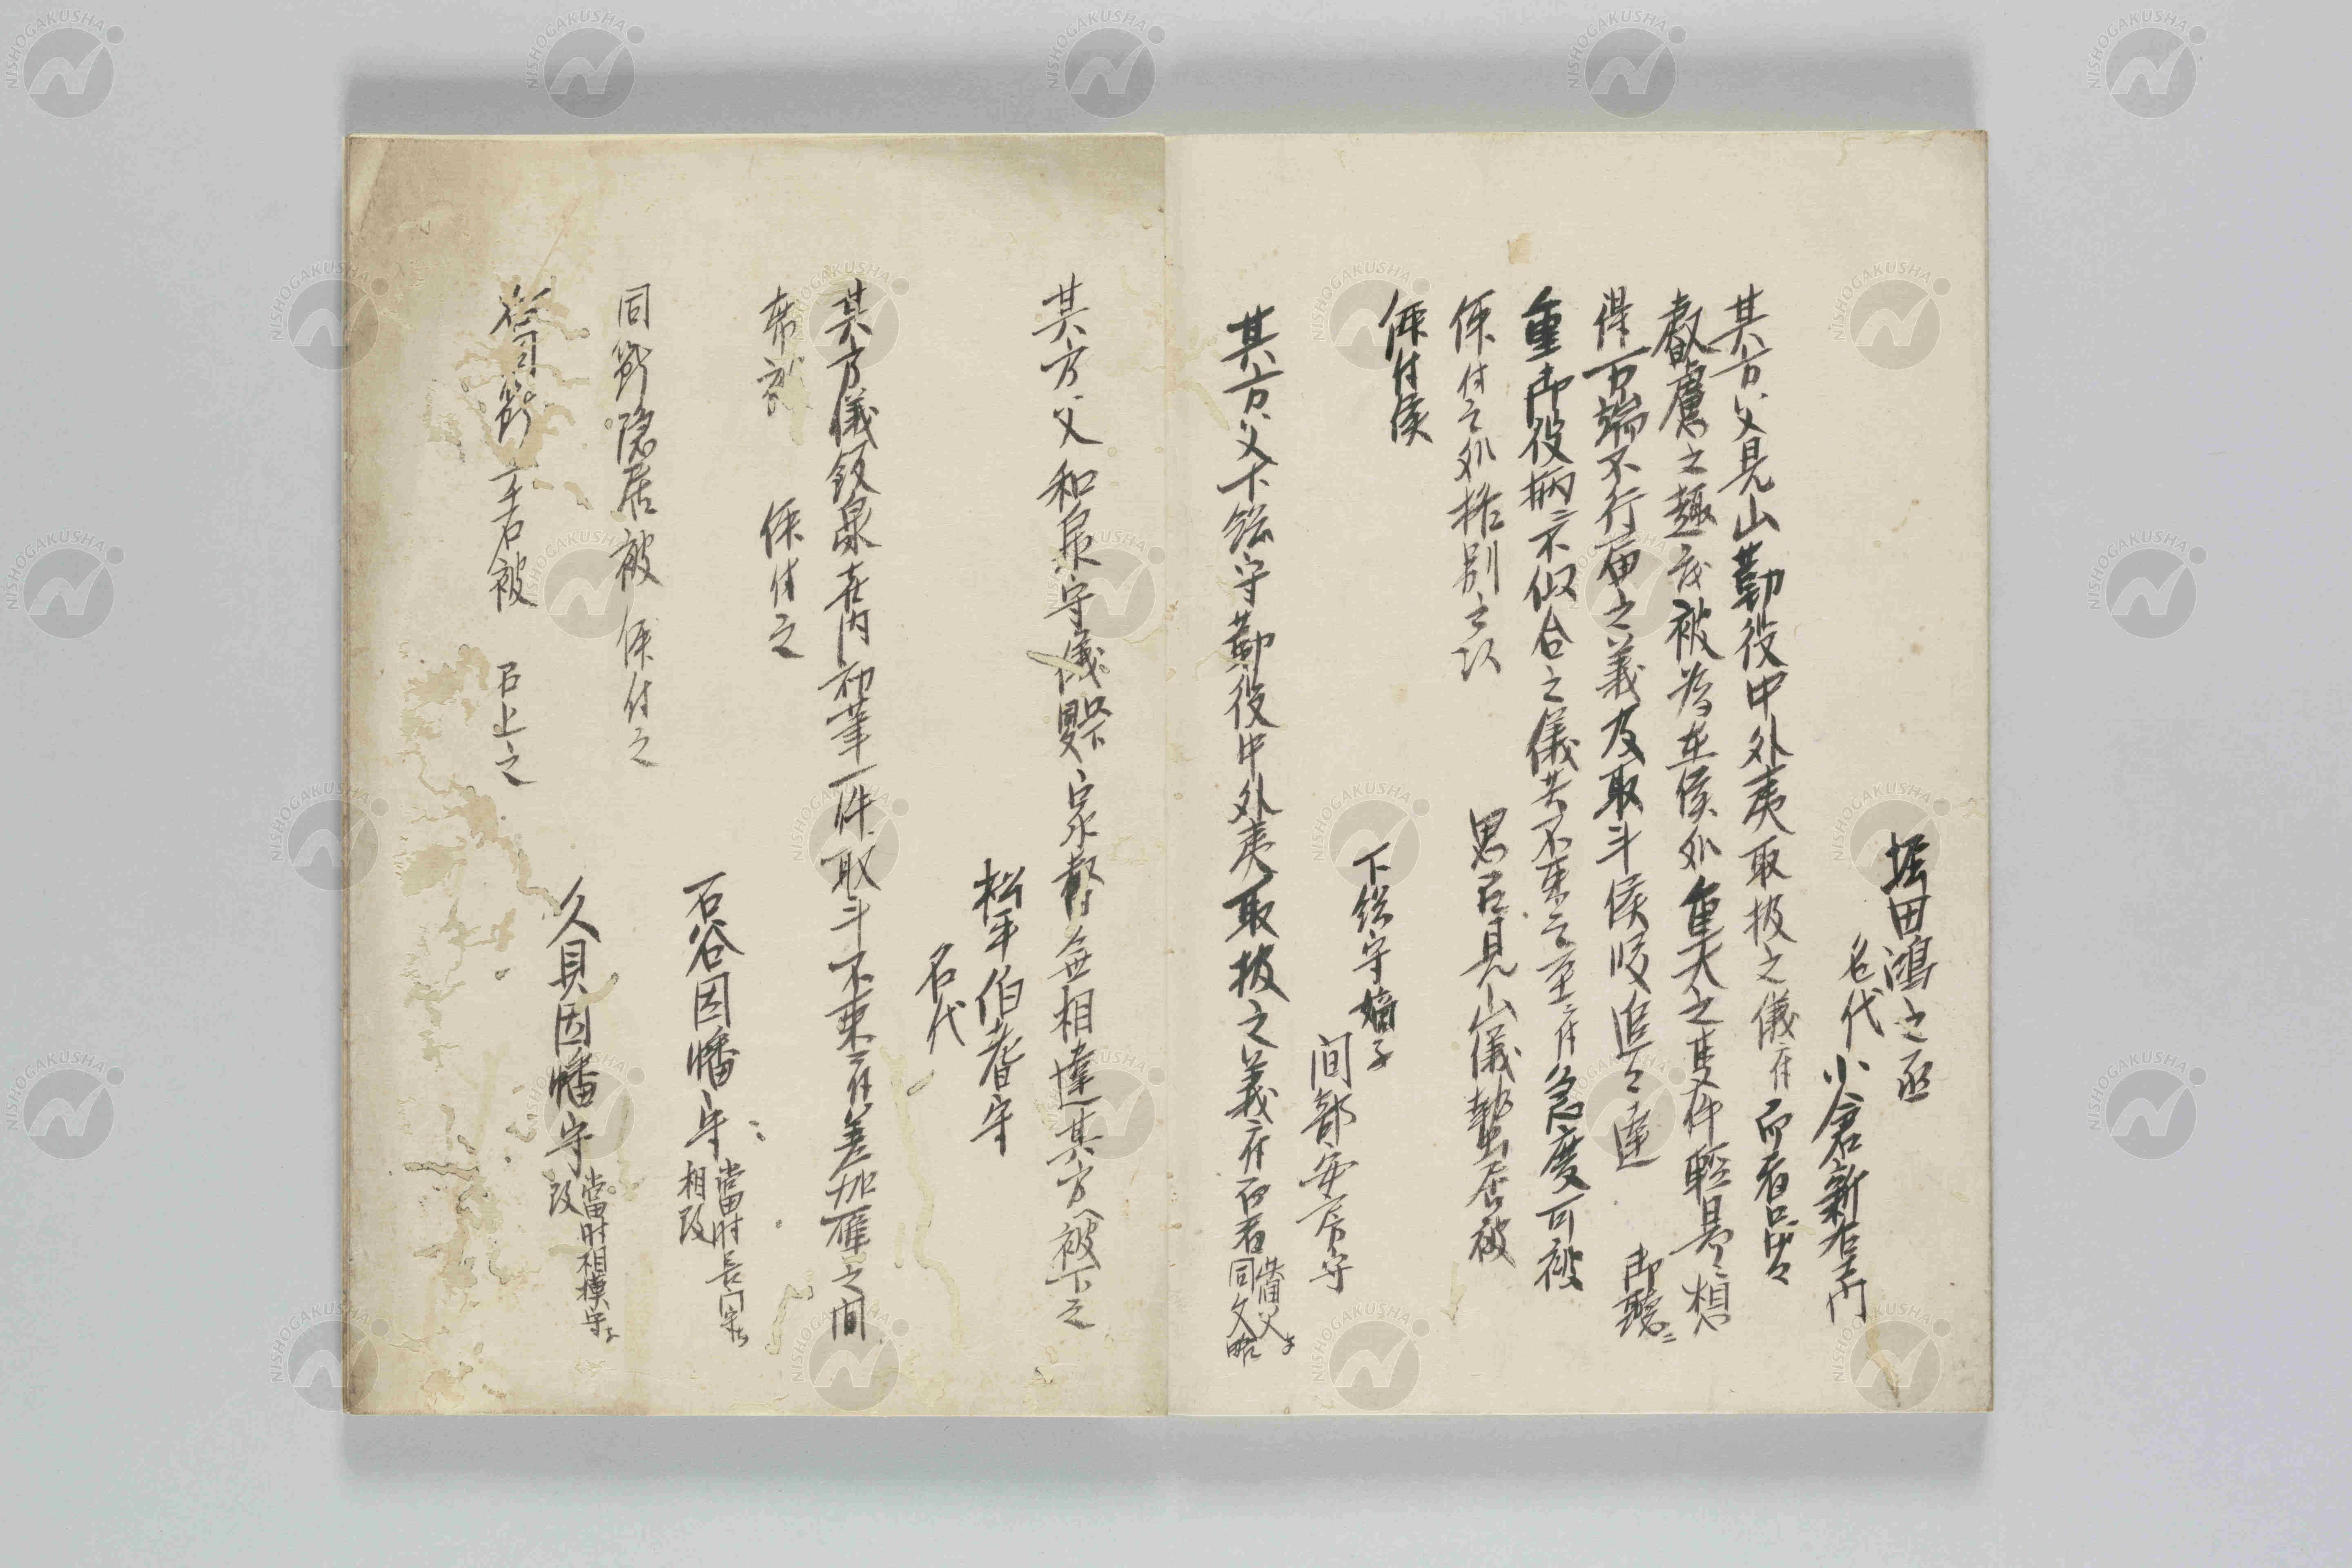 堀田鴻之丞
名代
小倉新右衛門
其方父見山勤役中外夷取扱之儀ニ付而者品々
叡慮之趣茂被為在候処重大之事件軽易ニ相
心得万端不行届之義及取斗候段追々達 御聴ニ
重御役柄ニ不似合之儀共不束之至ニ付急度可被
仰付之処格別之以 思召見山儀蟄居被
仰付候
下総守嫡子
間部安房守
其方父下総守勤役中外夷取扱之義ニ付而者
備父子
同文略
其方父和泉守儀 家督無相違其方へ被下之
松平伯耆守
名代
其方儀飯泉喜内初筆一件取斗不束ニ付差扣雁之間
席 被 仰付之
石谷因幡守
當時長門守
相改
同断隠居被 仰付之
久貝因幡守
當時相模守
改
同断 被 召上之